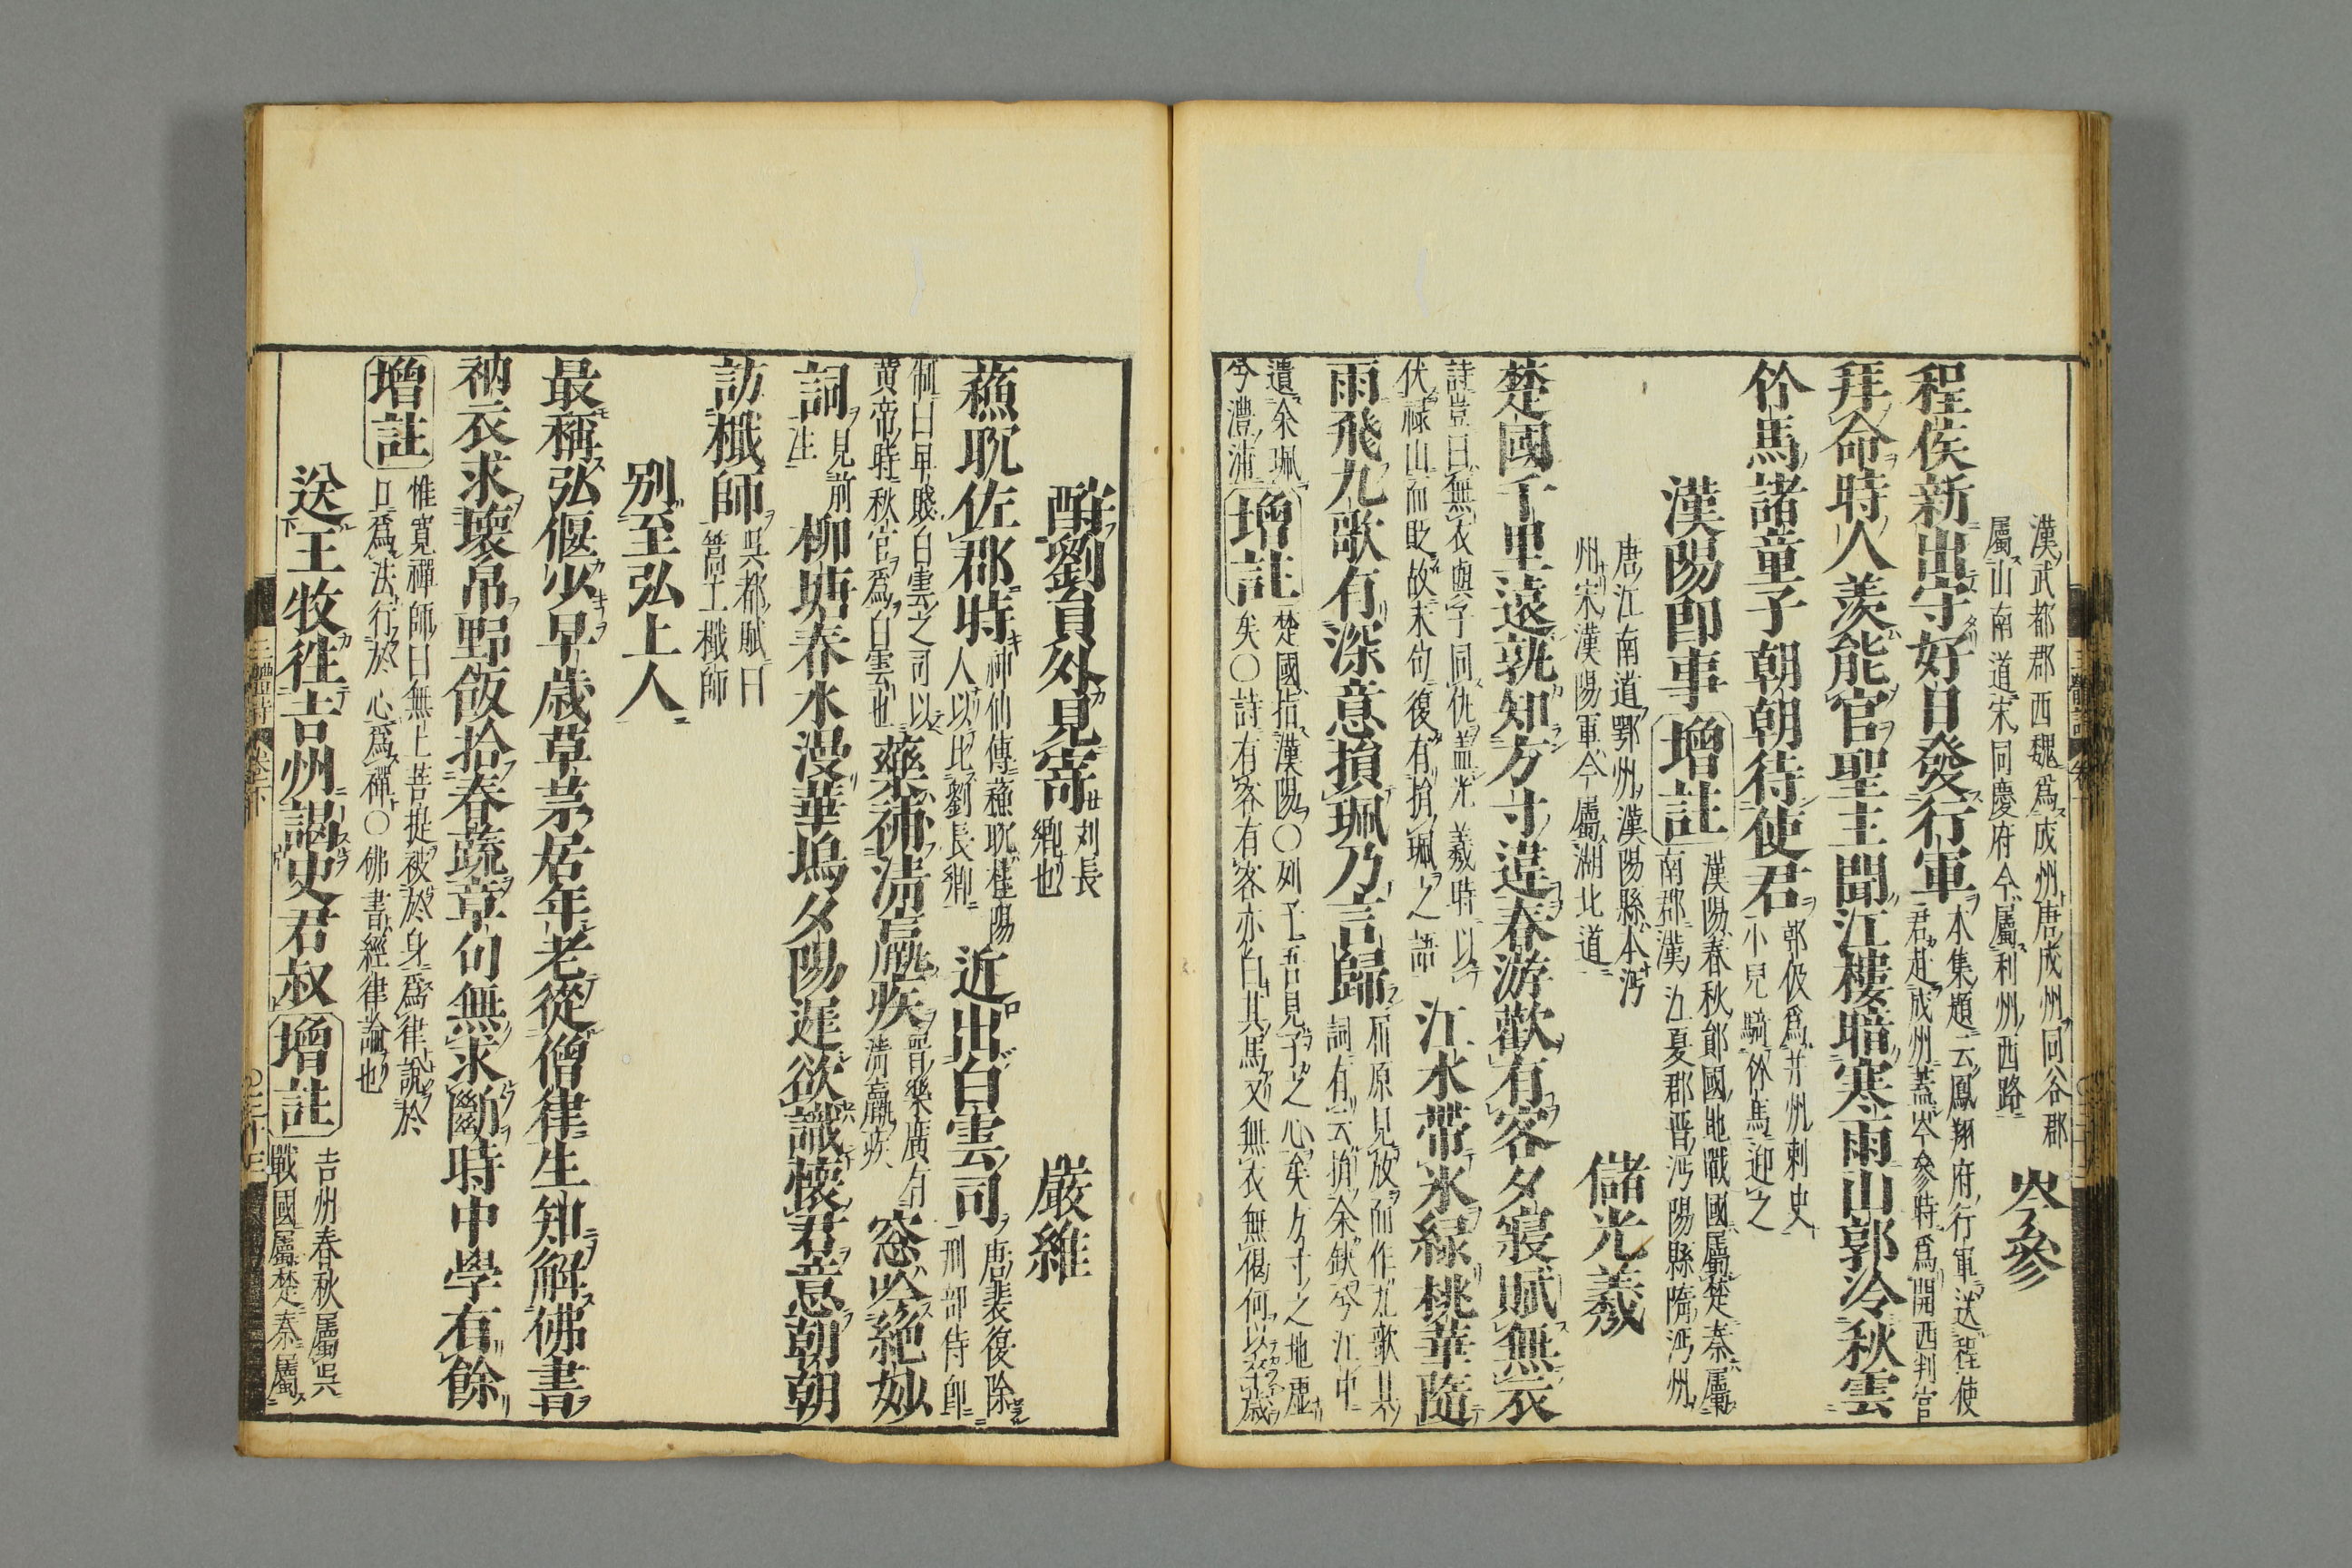 漢武都郡西魏爲成州唐成州同谷郡
屬山南道宋同慶府今屬利州西路
岑參
程侯新出守好日發行軍
本集題云鳳翔府行軍送程使
君赴成州蓋岑參時爲開西判官
拜命時人羨能官聖主聞江樓暗寒雨山郭冷秋雲
竹馬諸童子朝朝待使君
郭伋爲并州刺史
小兒騎竹馬迎之
漢陽即事
增註
漢陽春秋鄖國地戰國屬楚秦屬
南郡漢江夏郡晋沔陽縣隋沔州
唐江南道鄂州漢陽縣本沔
州宋漢陽軍今屬湖北道
儲光羲
楚國千里遠孰知方寸違春游歡有客夕寢賦無衣
詩豈曰無衣與子同仇蓋光羲時以
伏祿山而貶故末句復有捐珮之語
江水帶氷綠桃華隨
雨飛九歌有深意捐珮乃言歸
屈原見放而作九歌其
詞有云捐余玦兮江中
遺余珮
兮澧浦
增註
楚國指漢陽○列子吾見子之心矣方寸之地虛
矣○詩有客有客亦白其馬又無衣無褐何以卒歲
酬劉員外見寄
刘長
卿也
嚴維
蘓耽佐郡時
神仙傳蘓耽桂陽
人以比劉長卿
近出白雲司
唐裴復除
刑部侍郎
制曰早踐白雲之司以
黄帝時秋官爲白雲也
藥補淸羸疾
晋樂廣有
淸羸疾
窓吟絶妙
詞
見前
注
柳塘春水漫華塢夕陽遲欲識懷君意朝朝
訪檝師
呉都賦曰
篙工檝師
別至弘上人
最稱弘偃少早歳草茅居年老從僧律生知解佛書
衲衣求壞帛野飯拾春蔬章句無求斷時中學有餘
增註
惟寛禪師曰無上菩提被於身爲律說於
口爲法行於心爲禪○佛書經律論也
送王牧往吉州謁史君叔
增註
吉州春秋屬呉
戰國屬楚秦屬
三體詩
卷之下